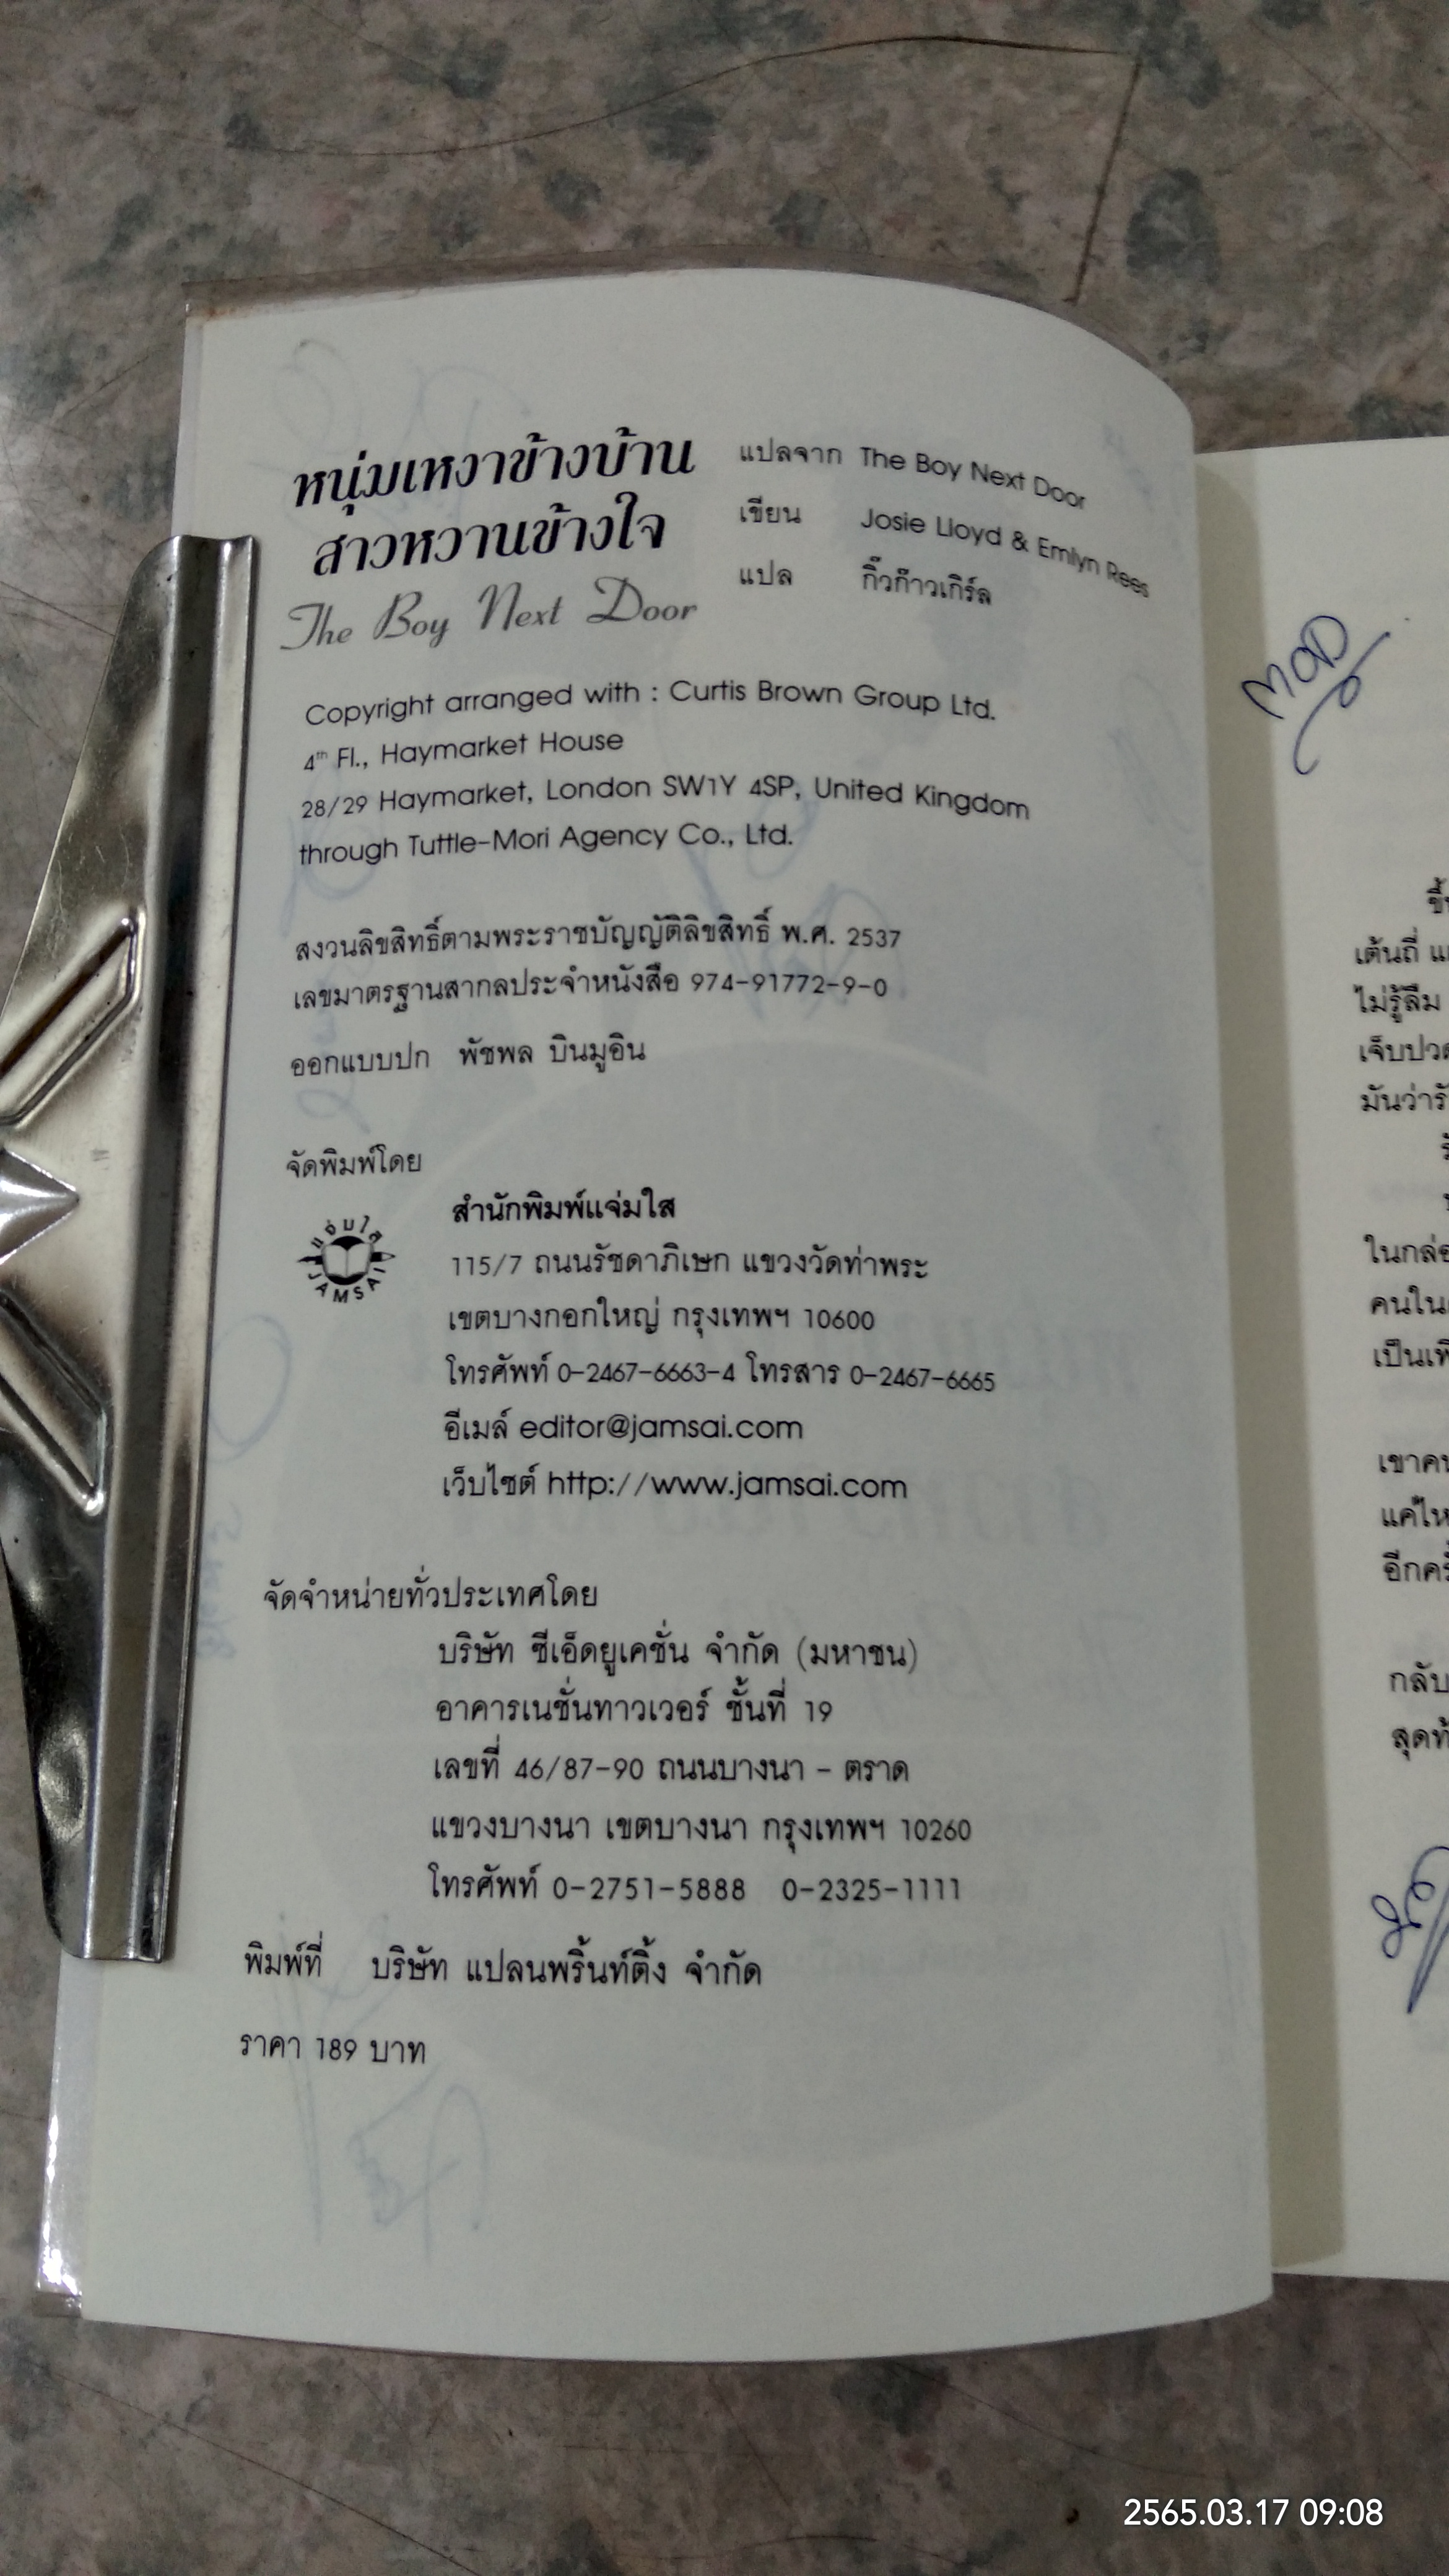 หนุ่มเหงาข้างบ้าน
สาวหวานข้างใจ
The Boy Next Door
แปลจาก The Boy Next Door
เขียน Josie Lloyd & Emlyn Rees
แปล กิ๊วก๊าวเกิร์ล
Copyright arranged with : Curtis Brown Group Ltd.
4th Fl., Haymarket House
28/29 Haymarket, London SW1Y 4SP, United Kingdom
through Tuttle-Mori Agency Co., Ltd.
สงวนลิขสิทธิ์ตามพระราชบัญญัติลิขสิทธิ์ พ.ศ. 2537
เลขมาตรฐานสากลประจำหนังสือ 974-91772-9-0
ออกแบบปก พัชพล บินมูอิน
จัดพิมพ์โดย
แจ่มใส
JAMSAI
สำนักพิมพ์แจ่มใส
115/7 ถนนรัชดาภิเษก แขวงวัดท่าพระ
เขตบางกอกใหญ่ กรุงเทพฯ 10600
โทรศัพท์ 0-2467-6663-4 โทรสาร 0-2467-6665
อีเมล์ editor@jamsai.com
เว็บไซต์ http://www.jamsai.com
จัดจำหน่ายทั่วประเทศโดย
บริษัท ซีเอ็ดยูเคชั่น จำกัด (มหาชน)
อาคารเนชั่นทาวเวอร์ ชั้นที่ 19
เลขที่ 46/87-90 ถนนบางนา - ตราด
แขวงบางนา เขตบางนา กรุงเทพฯ 10260
โทรศัพท์ 0-2751-5888 0-2325-1111
พิมพ์ที่ บริษัท แปลนพริ้นท์ติ้ง จำกัด
ราคา 189 บาท
MOD
เต้นถี่
ไม่รู้ลืม
เจ็บปวด
มันว่ารั
ในกล่อ
คนใน
เป็นเพื
เขาค
แค่ไห
อีกครั้
กลับ
สุดท้
2565.03.17 09:08